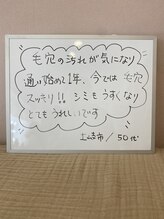 毛穴の汚れが気になり
通い始めて1年、今では毛穴
スッキリ!! シミもうすくなり
とてもうれしいです
土岐市/50代